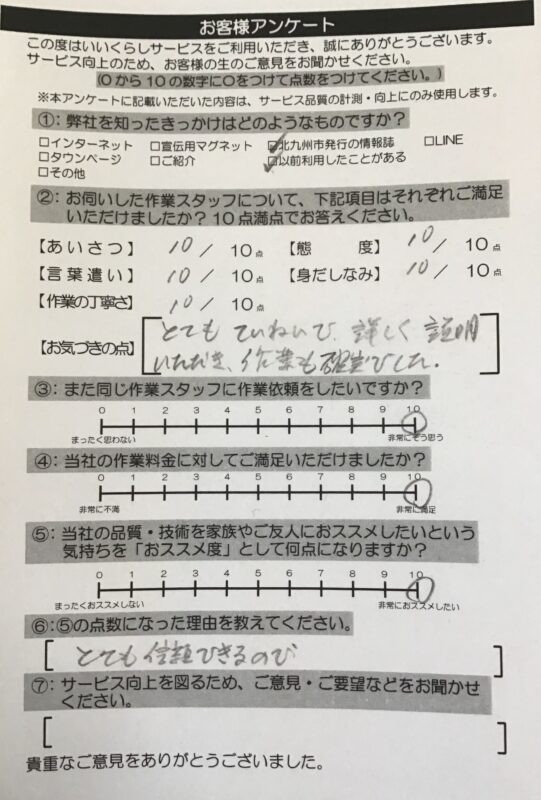 お客様アンケート
この度はいいくらしサービスをご利用いただき、誠にありがとうございます。
サービス向上のため、お客様の生のご意見をお聞かせください。
(0から10の数字に○をつけて点数をつけてください。)
※本アンケートに記載いただいた内容は、サービス品質の計測・向上にのみ使用します。
①：弊社を知ったきっかけはどのようなものですか？
□インターネット □宣伝用マグネット □北九州市発行の情報誌 □LINE
□タウンページ □ご紹介 ☑以前利用したことがある
□その他
②：お伺いした作業スタッフについて、下記項目はそれぞれご満足
いただけましたか？10点満点でお答えください。
【あいさつ】 10 / 10点 【態度】 10 / 10点
【言葉遣い】 10 / 10点 【身だしなみ】 10 / 10点
【作業の丁寧さ】 10 / 10点
【お気づきの点】 とても ていねいで、詳しく 説明
いただき、作業も確実でした。
③：また同じ作業スタッフに作業依頼をしたいですか？
0 1 2 3 4 5 6 7 8 9 10
まったく思わない 非常にそう思う
④：当社の作業料金に対してご満足いただけましたか？
0 1 2 3 4 5 6 7 8 9 10
非常に不満 非常に満足
⑤：当社の品質・技術を家族やご友人におススメしたいという
気持ちを「おススメ度」として何点になりますか？
0 1 2 3 4 5 6 7 8 9 10
まったくおススメしない 非常におススメしたい
⑥：⑤の点数になった理由を教えてください。
とても信頼できるので
⑦：サービス向上を図るため、ご意見・ご要望などをお聞かせ
ください。
貴重なご意見をありがとうございました。